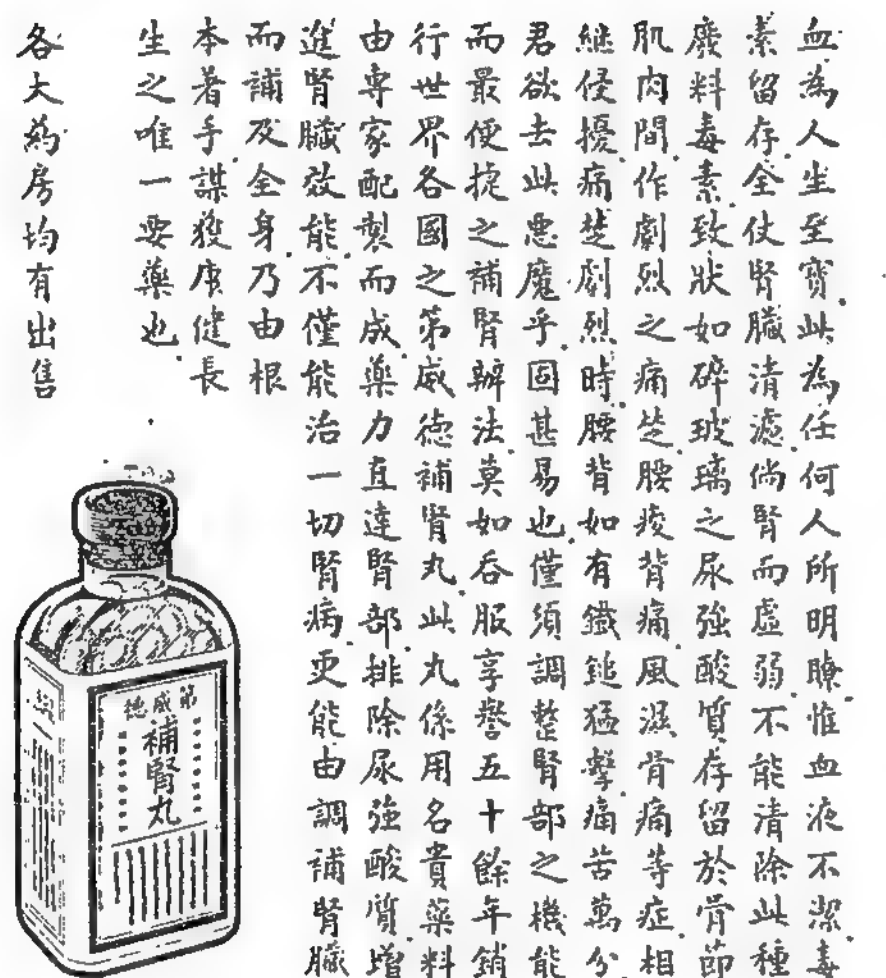 血為人生至寶此為任何人所明瞭惟血液不潔毒
素留存全仗腎臟清濾倘腎而虛弱不能清除此種
廢料毒素致狀如碎玻璃之尿強酸質存留於骨節
肌肉間作劇烈之痛楚腰痠背痛風濕骨痛等症相
繼侵擾痛楚劇烈時腰背如有鐵鎚猛擊痛苦萬分
君欲去此悪魔乎固甚易也僅須調整腎部之機能
而最便捷之補腎辦法莫如吞服享譽五十餘年銷
行世界各國之第威德補腎丸此丸係用名貴藥料
由專家配製而成藥力直達腎部排除尿強酸質增
進腎臟效能不僅能治一切腎病更能由調補腎臟
而補及全身乃由根
本著手謀獲康健長
生之唯一要藥也
各大葯房均有出售
第威德
補腎丸